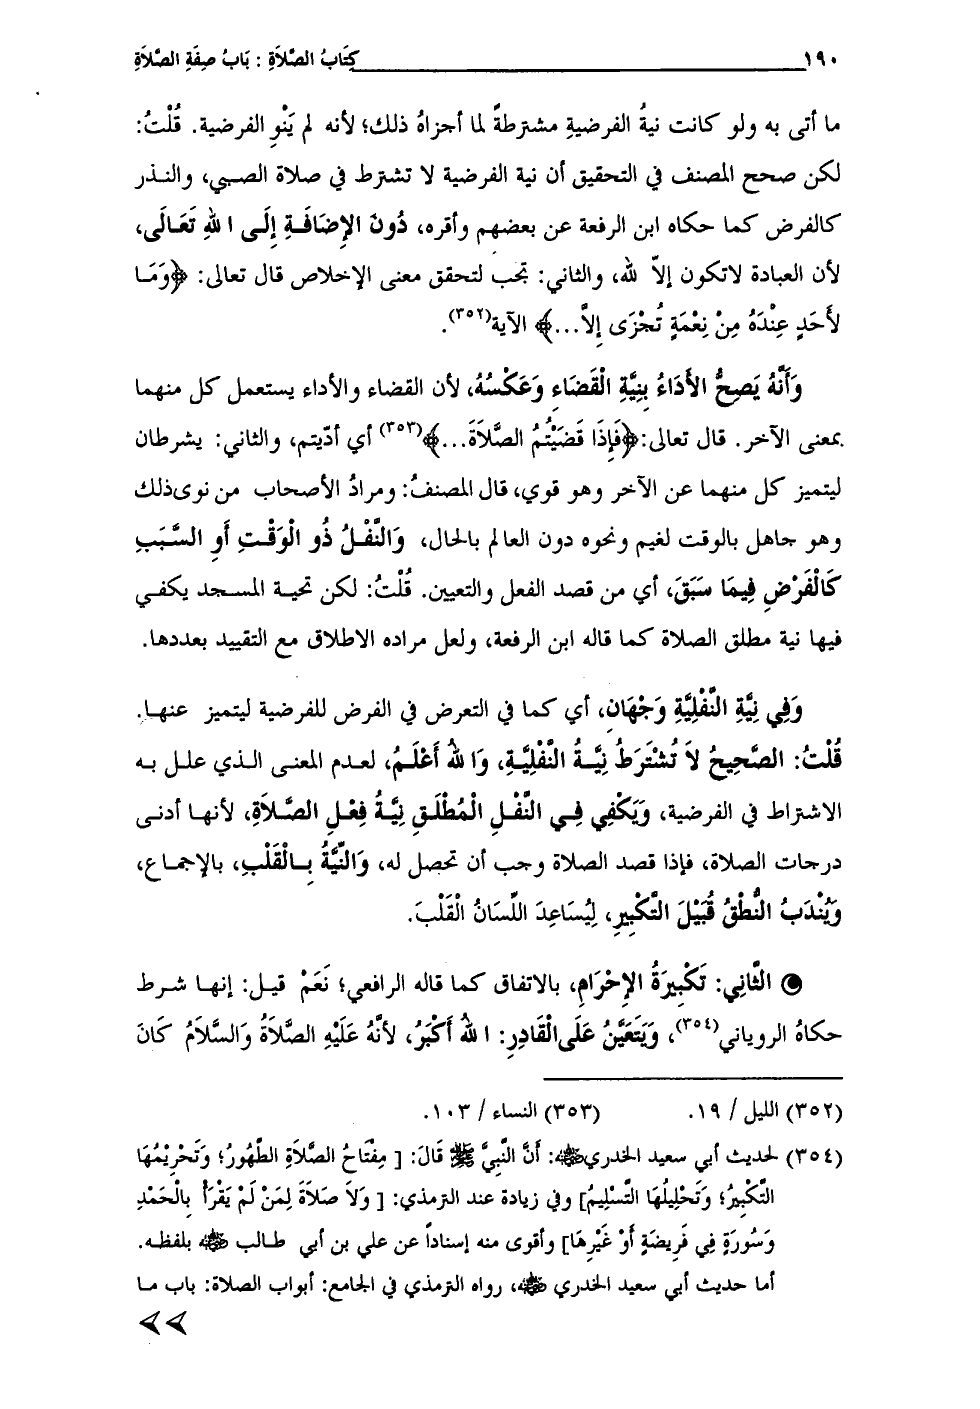 ١٩٠ كِتَابُ الصَّلَاةِ : بَابُ صِفَةِ الصَّلَاةِ
ما أتى به ولو كانت نيةُ الفرضيةِ مشترطةً لما أجزاهُ ذلك؛ لأنه لم يَنْوِ الفرضية. قُلْتُ:
لكن صحح المصنف في التحقيق أن نية الفرضية لا تشترط في صلاة الصبي، والنذر
كالفرض كما حكاه ابن الرفعة عن بعضهم وأقره، دُونَ الإِضَافَةِ إِلَى اللهِ تَعَالَى،
لأن العبادة لاتكون إلاّ لله، والثاني: تجب لتحقق معنى الإخلاص قال تعالى: ﴿وَمَا
لأَحَدٍ عِنْدَهُ مِنْ نِعْمَةٍ تُجْزَى إِلاَّ...﴾ الآية(٣٥٢).
وَأَنَّهُ يَصِحُّ الأَدَاءُ بِنِيَّةِ الْقَضَاءِ وَعَكْسُهُ، لأن القضاء والأداء يستعمل كل منهما
بمعنى الآخر. قال تعالى:﴿فَإِذَا قَضَيْتُمُ الصَّلَاةَ...﴾(٣٥٣) أي أدّيتم، والثاني: يشرطان
ليتميز كل منهما عن الآخر وهو قوي، قال المصنفُ: ومرادُ الأصحاب من نوى ذلك
وهو جاهل بالوقت لغيم ونحوه دون العالم بالحال، وَالنَّفْلُ ذُو الْوَقْتِ أَوِ السَّبَبِ
كَالْفَرْضِ فِيمَا سَبَقَ، أي من قصد الفعل والتعيين. قُلْتُ: لكن تحية المسجد يكفي
فيها نية مطلق الصلاة كما قاله ابن الرفعة، ولعل مراده الاطلاق مع التقييد بعددها.
وَفِي نِيَّةِ النَّفْلِيَّةِ وَجْهَانِ، أي كما في التعرض في الفرض للفرضية ليتميز عنها.
قُلْتُ: الصَّحِيحُ لاَ تُشْتَرَطُ نِيَّةُ النَّفْلِيَّةِ، وَاللهُ أَعْلَمُ، لعدم المعنى الذي علل به
الاشتراط في الفرضية، وَيَكْفِي فِي النَّفْلِ الْمُطْلَقِ نِيَّةُ فِعْلِ الصَّلَاةِ، لأنها أدنى
درجات الصلاة، فإذا قصد الصلاة وجب أن تحصل له، وَالنِّيَّةُ بِالْقَلْبِ، بالإجماع،
وَيُنْدَبُ النُّطْقُ قُبَيْلَ التَّكْبِيرِ، لِيُسَاعِدَ اللِّسَانُ الْقَلْبَ.
الثَّانِي: تَكْبِيرَةُ الإِحْرَامِ، بالاتفاق كما قاله الرافعي؛ نَعَمْ قيل: إنها شرط
حكاهُ الروياني(٣٥٤)، وَيَتَعَيَّنُ عَلَى الْقَادِرِ: اللهُ أَكْبَرُ، لأَنَّهُ عَلَيْهِ الصَّلَاةُ وَالسَّلَامُ كَانَ
(٣٥٢) الليل / ١٩. (٣٥٣) النساء / ١٠٣.
(٣٥٤) لحديث أبي سعيد الخدري ﷺ: أَنَّ النَّبِيَّ ﷺ قَالَ: [ مِفْتَاحُ الصَّلَاةِ الطَّهُورُ؛ وَتَحْرِيْمُهَا
التَّكْبِيرُ؛ وَتَحْلِيلُهَا التَّسْلِيمُ] وفي زيادة عند الترمذي: [ وَلاَ صَلَاةَ لِمَنْ لَمْ يَقْرَأْ بِالْحَمْدِ
وَسُورَةٍ فِي فَرِيضَةٍ أَوْ غَيْرِهَا] وأقوى منه إسناداً عن علي بن أبي طالب ﷺ بلفظه.
أما حديث أبي سعيد الخدري ﷺ، رواه الترمذي في الجامع: أبواب الصلاة: باب ما